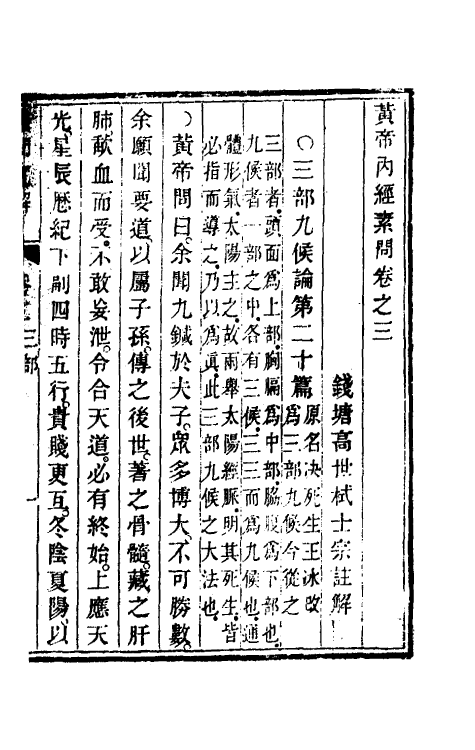 黃帝內經素問卷之三
錢塘高世栻士宗註解
○三部九候論第二十篇
原名決死生王冰改
爲三部九候今從之
三部者。頭面爲上部。胸膈爲中部。脇腹爲下部也。
九候者。一部之中。各有三候。三三而爲九候也。通
體形氣。太陽主之。故兩舉太陽經脈。明其死生。皆
必指而導之。乃以爲眞。此三部九候之大法也。
○黃帝問曰。余聞九鍼於夫子。衆多博大。不可勝數。
余願聞要道。以屬子孫。傳之後世。著之骨髓。藏之肝
肺。歃血而受。不敢妄泄。令合天道。必有終始。上應天
光。星辰歷紀。下副四時五行。貴賤更互。冬陰夏陽。以